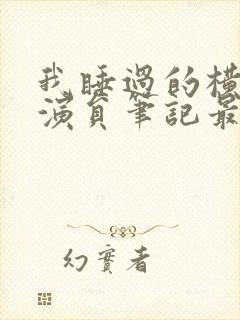 我睡過的橫
演員筆記最
幻實者